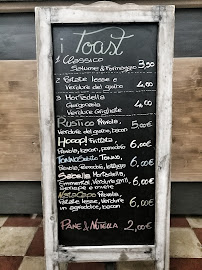 i Toast
1 Classico
Salumi & Formaggio 3,50
2 Patate lesse e
Verdure del giorno 4,00
3 Mortadella
Gorgonzola
Verdure Grigliate 4,00
Rustico Provola,
Verdure del giorno, bacon 5,00€
Hooop! Frittata,
Provola, bacon, pomodoro 6,00€
Tonno,
Provola, pomodoro, lattuga 6,00€
Mortadella,
Emmental, Verdure grill,
Senape e miele 6,00€
Provola,
Patate lesse, Verdure
in agrodolce, bacon 6,00€
Pane & Nutella 2,00€